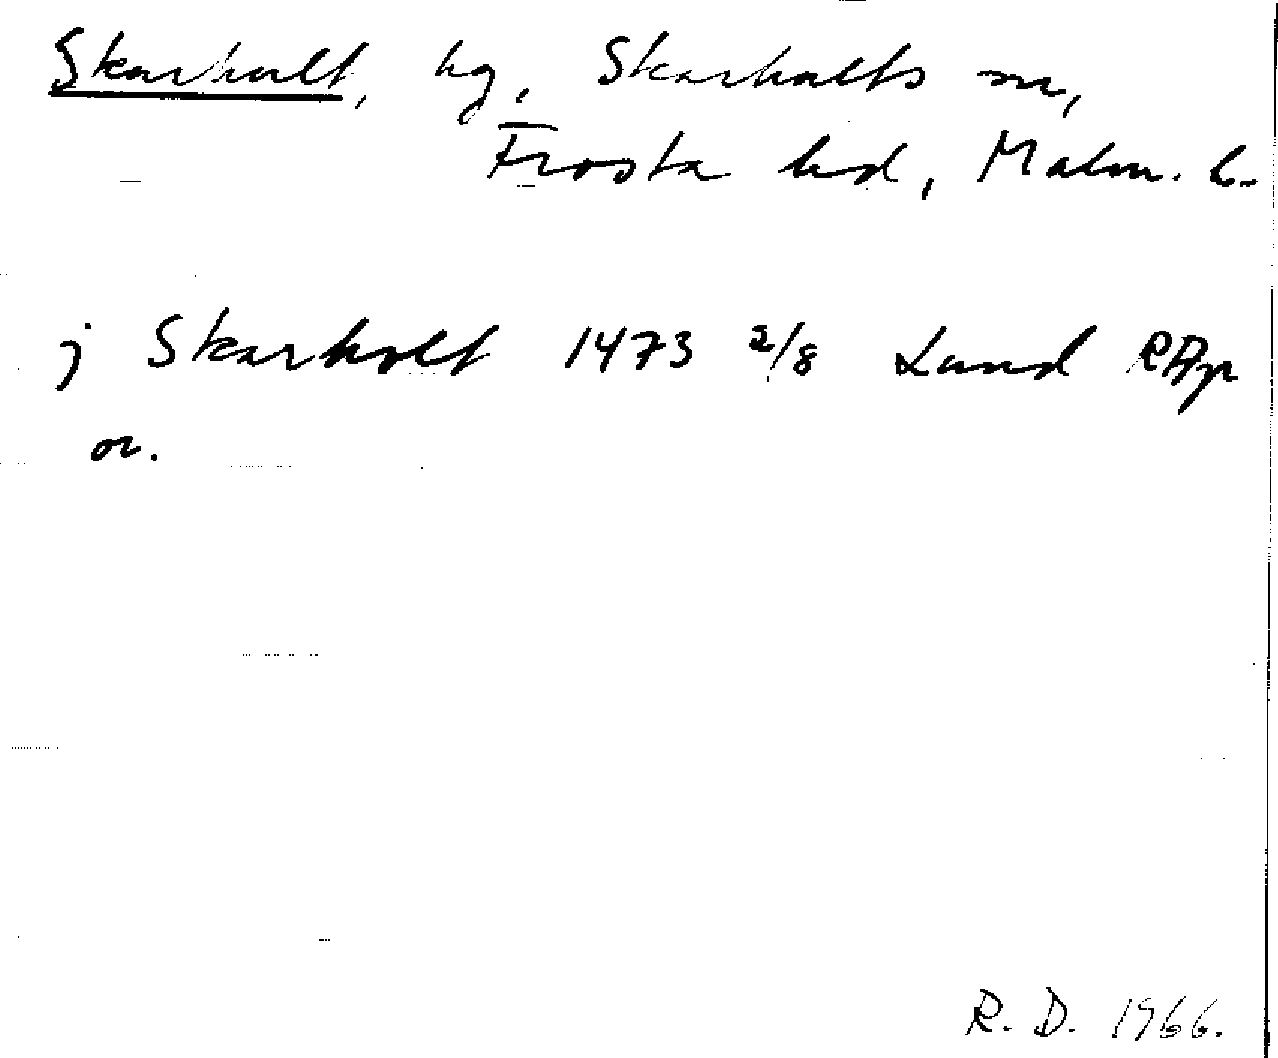 Skarhult, hg, Skarhults sn,
Frosta hd, Malm. l.
j Skarholt 1473 2/8 Lund RAp
or.
R. D. 1966.